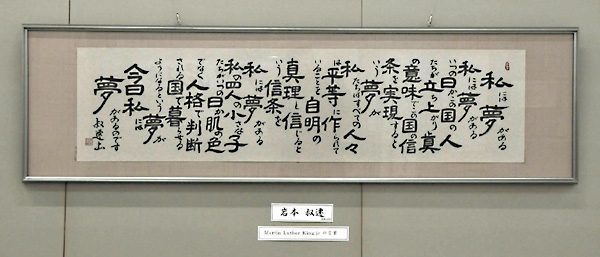 私には夢がある
私には夢がある
いつの日かこの国の人
たちが立ち上がり真
の意味でこの国の信
条を実現すると
いう夢が
私たちはすべての人々
は平等に作られて
いることを自明の
真理と信じると
いう信条を
私には夢がある
私の四人の小さな子
たちがいつの日か肌の色
でなく人格で判断
される国で暮らせる
ようになるという夢が
今日私には
夢があるのです
岩本
Martin Luther King.Jr の言葉